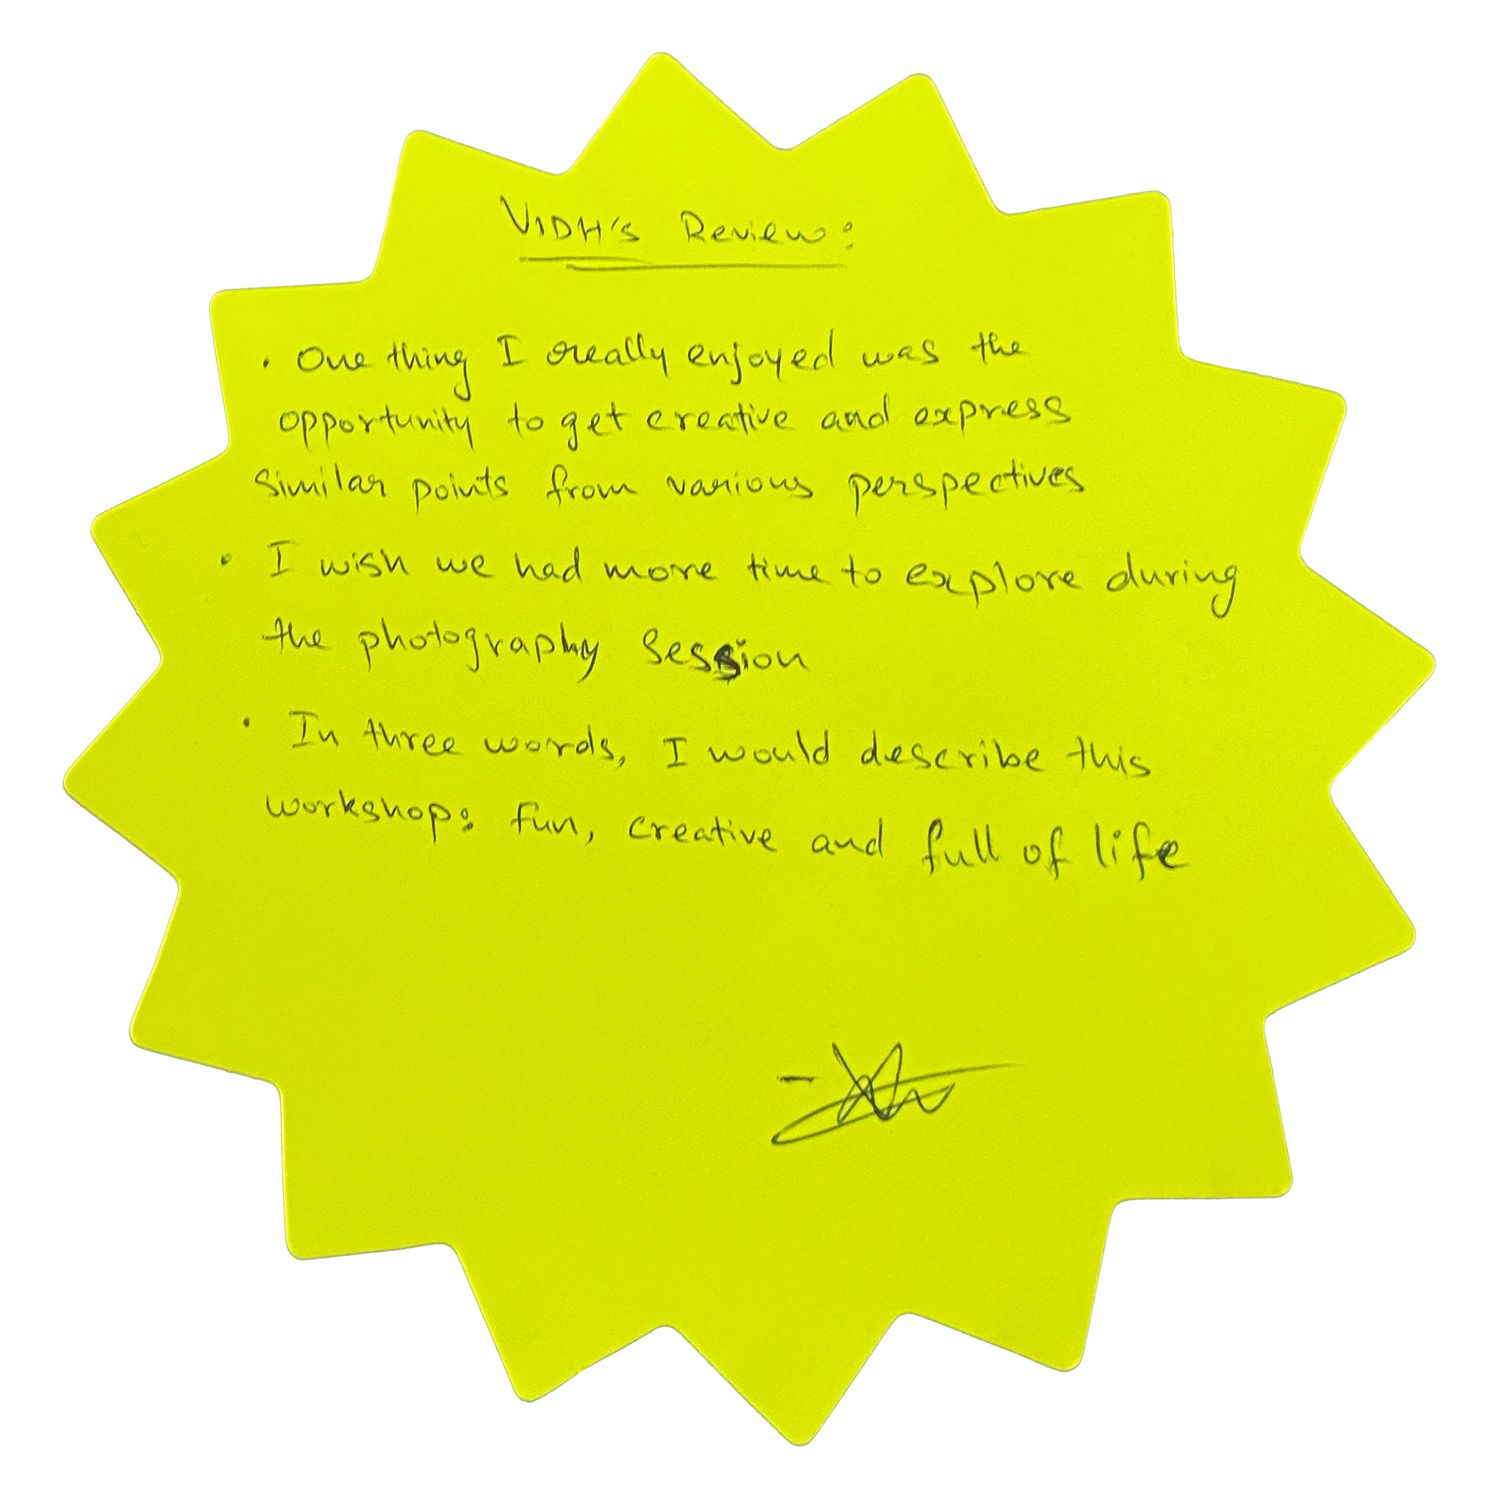 VIDH's Review:
• One thing I really enjoyed was the
opportunity to get creative and express
similar points from various perspectives
• I wish we had more time to explore during
the photography session
• In three words, I would describe this
workshop: fun, creative and full of life